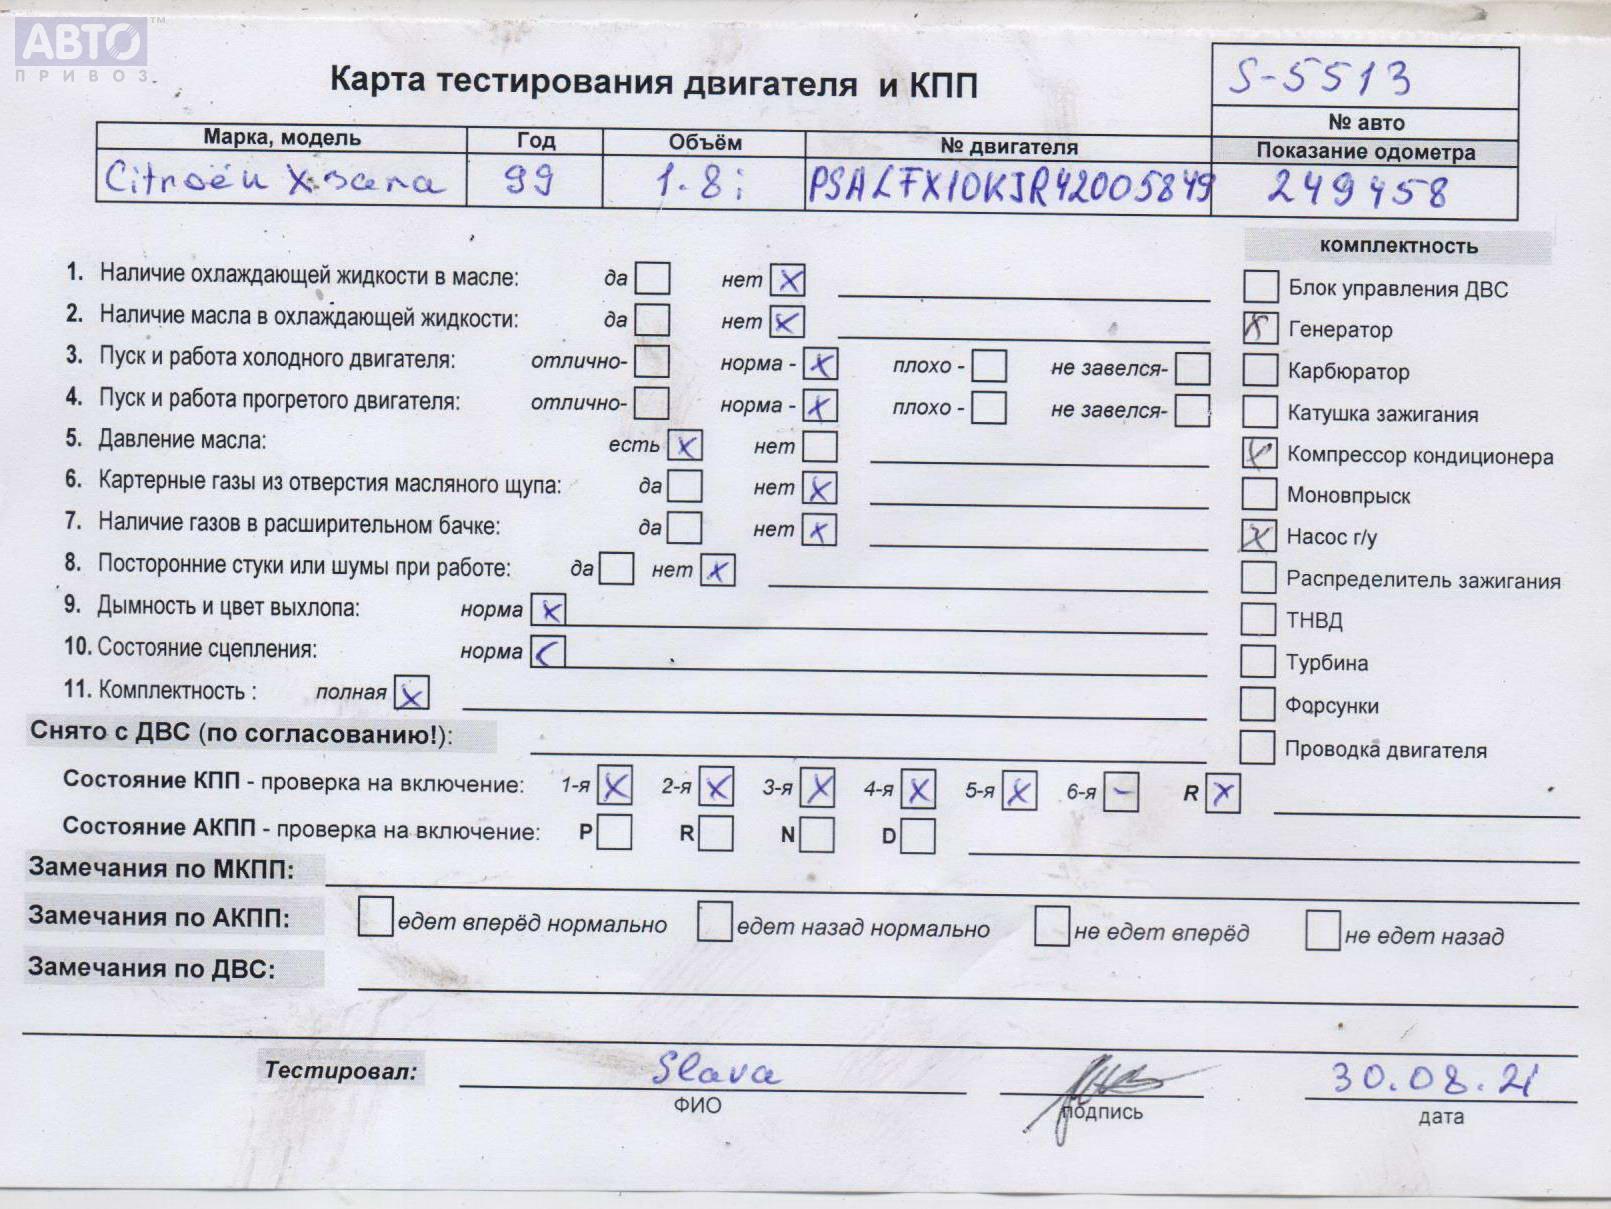 АВТО™
ПРИВОЗ
Карта тестирования двигателя и КПП
S-5513
№ авто
Марка, модель Год Объём № двигателя Показание одометра
Citroën Xsara 99 1.8i PSALFX10KJR42005849 249458
комплектность
1. Наличие охлаждающей жидкости в масле: да нет x
Блок управления ДВС
2. Наличие масла в охлаждающей жидкости: да нет x
x Генератор
3. Пуск и работа холодного двигателя: отлично- норма - x плохо - не завелся-
Карбюратор
4. Пуск и работа прогретого двигателя: отлично- норма - x плохо - не завелся-
Катушка зажигания
5. Давление масла: есть x нет
x Компрессор кондиционера
6. Картерные газы из отверстия масляного щупа: да нет x
Моновпрыск
7. Наличие газов в расширительном бачке: да нет x
x Насос г/у
8. Посторонние стуки или шумы при работе: да нет x
Распределитель зажигания
9. Дымность и цвет выхлопа: норма x
ТНВД
10. Состояние сцепления: норма x
Турбина
11. Комплектность : полная x
Форсунки
Снято с ДВС (по согласованию!):
Проводка двигателя
Состояние КПП - проверка на включение: 1-я x 2-я x 3-я x 4-я x 5-я x 6-я - R x
Состояние АКПП - проверка на включение: P R N D
Замечания по МКПП:
Замечания по АКПП: едет вперёд нормально едет назад нормально не едет вперёд не едет назад
Замечания по ДВС:
Тестировал: Slava 30.08.21
ФИО подпись дата